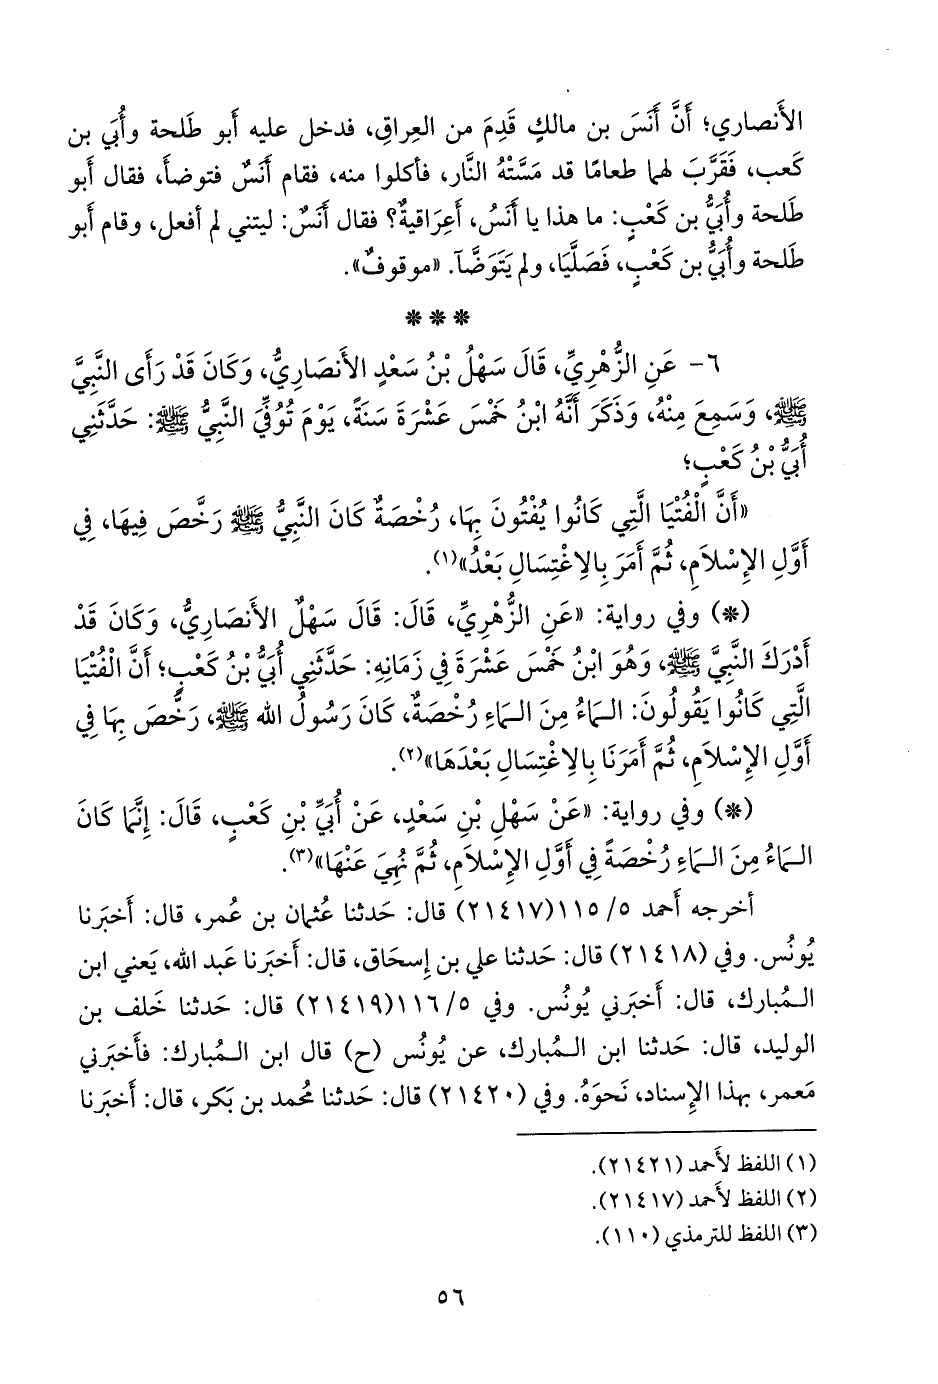 الأَنصاري؛ أَنَّ أَنَسَ بن مالكٍ قَدِمَ من العِراقِ، فدخل عليه أَبو طَلحة وأُبَي بن
كَعب، فَقَرَّبَ لهما طعامًا قد مَسَّتْهُ النَّار، فأكلوا منه، فقام أَنَسٌ فتوضأَ، فقال أَبو
طَلحة وأُبَيُّ بن كَعْبٍ: ما هذا يا أَنَسُ، أَعِرَاقيةٌ؟ فقال أَنَسٌ: ليتني لم أفعل، وقام أَبو
طَلحة وأُبَيُّ بن كَعْبٍ، فَصَلَّيَا، ولم يَتَوَضَّآ. «موقوفٌ».
* * *
٦- عَنِ الزُّهْرِيِّ، قَالَ سَهْلُ بْنُ سَعْدٍ الأَنصَارِيُّ، وَكَانَ قَدْ رَأَى النَّبِيَّ
ﷺ، وَسَمِعَ مِنْهُ، وَذَكَرَ أَنَّهُ ابْنُ خَمْسَ عَشْرَةَ سَنَةً، يَوْمَ تُوُفِّيَ النَّبِيُّ ﷺ: حَدَّثَنِي
أُبَيُّ بْنُ كَعْبٍ؛
«أَنَّ الْفُتْيَا الَّتِي كَانُوا يُفْتُونَ بِهَا، رُخْصَةٌ كَانَ النَّبِيُّ ﷺ رَخَّصَ فِيهَا، فِي
أَوَّلِ الإِسْلَامِ، ثُمَّ أَمَرَ بِالِاغْتِسَالِ بَعْدُ»(١).
(*) وفي رواية: «عَنِ الزُّهْرِيِّ، قَالَ: قَالَ سَهْلٌ الأَنصَارِيُّ، وَكَانَ قَدْ
أَدْرَكَ النَّبِيَّ ﷺ، وَهُوَ ابْنُ خَمْسَ عَشْرَةَ فِي زَمَانِهِ: حَدَّثَنِي أُبَيُّ بْنُ كَعْبٍ؛ أَنَّ الْفُتْيَا
الَّتِي كَانُوا يَقُولُونَ: الـمَاءُ مِنَ الـمَاءِ رُخْصَةٌ، كَانَ رَسُولُ الله ﷺ، رَخَّصَ بِهَا فِي
أَوَّلِ الإِسْلَامِ، ثُمَّ أَمَرَنَا بِالِاغْتِسَالِ بَعْدَهَا»(٢).
(*) وفي رواية: «عَنْ سَهْلِ بْنِ سَعْدٍ، عَنْ أُبَيِّ بْنِ كَعْبٍ، قَالَ: إِنَّمَا كَانَ
الـمَاءُ مِنَ الـمَاءِ رُخْصَةً فِي أَوَّلِ الإِسْلَامِ، ثُمَّ نُهِيَ عَنْهَا»(٣).
أخرجه أَحمد ٥/ ١١٥(٢١٤١٧) قال: حَدثنا عُثمان بن عُمر، قال: أَخبَرنا
يُونُس. وفي (٢١٤١٨) قال: حَدثنا علي بن إِسحَاق، قال: أَخبَرنا عَبد الله، يَعني ابن
الـمُبارك، قال: أَخبَرني يُونُس. وفي ٥/ ١١٦(٢١٤١٩) قال: حَدثنا خَلف بن
الوليد، قال: حَدثنا ابن الـمُبارك، عن يُونُس (ح) قال ابن الـمُبارك: فأَخبَرني
مَعمر، بهذا الإِسناد، نَحوَهُ. وفي (٢١٤٢٠) قال: حَدثنا مُحمد بن بَكر، قال: أَخبَرنا
(١) اللفظ لأَحمد (٢١٤٢١).
(٢) اللفظ لأَحمد (٢١٤١٧).
(٣) اللفظ للترمذي (١١٠).
٥٦